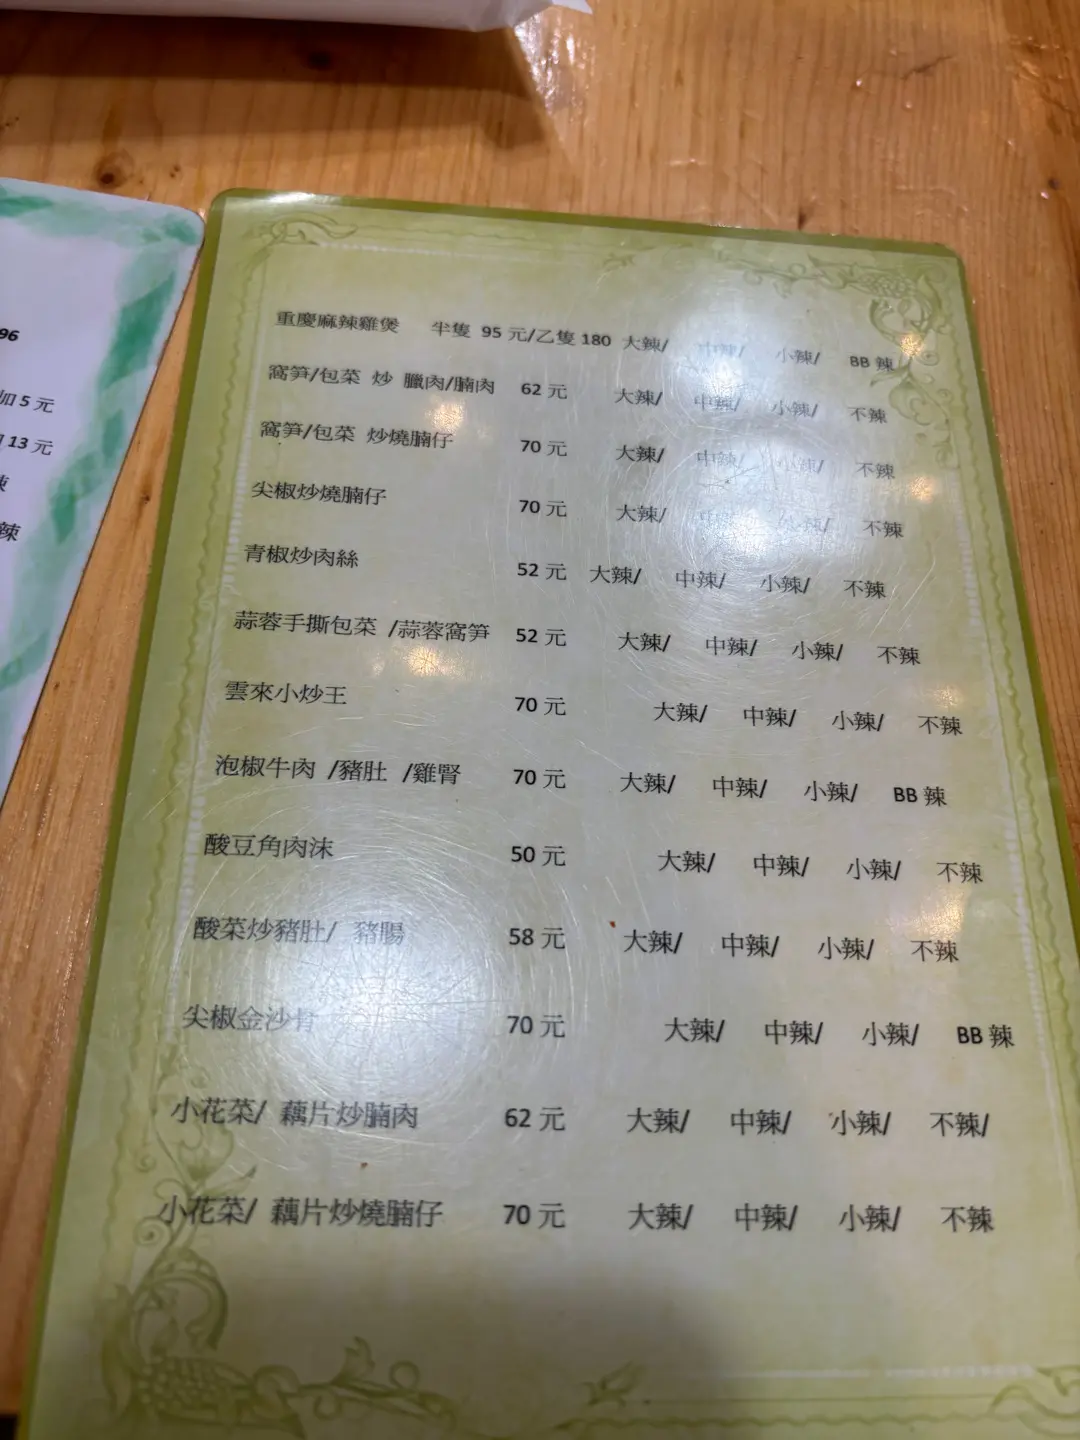 96
加 5 元
13 元
辣
重慶麻辣雞煲 半隻 95 元/乙隻 180 大辣/ 中辣/ 小辣/ BB 辣
窩笋/包菜 炒 臘肉/腩肉 62 元 大辣/ 中辣/ 小辣/ 不辣
窩笋/包菜 炒燒腩仔 70 元 大辣/ 中辣/ 小辣/ 不辣
尖椒炒燒腩仔 70 元 大辣/ 中辣/ 小辣/ 不辣
青椒炒肉絲 52 元 大辣/ 中辣/ 小辣/ 不辣
蒜蓉手撕包菜 /蒜蓉窩笋 52 元 大辣/ 中辣/ 小辣/ 不辣
雲來小炒王 70 元 大辣/ 中辣/ 小辣/ 不辣
泡椒牛肉 /豬肚 /雞腎 70 元 大辣/ 中辣/ 小辣/ BB 辣
酸豆角肉沫 50 元 大辣/ 中辣/ 小辣/ 不辣
酸菜炒豬肚/ 豬腸 58 元 大辣/ 中辣/ 小辣/ 不辣
尖椒金沙骨 70 元 大辣/ 中辣/ 小辣/ BB 辣
小花菜/ 藕片炒腩肉 62 元 大辣/ 中辣/ 小辣/ 不辣/
小花菜/ 藕片炒燒腩仔 70 元 大辣/ 中辣/ 小辣/ 不辣